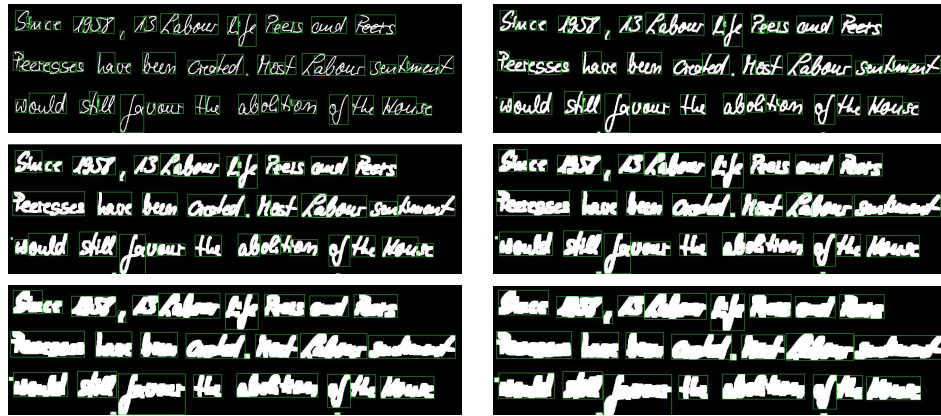 Since 1958, 13 Labour Life Peers and Peers
Peeresses have been created. Most Labour sentiment
would still favour the abolition of the House
Since 1958, 13 Labour Life Peers and Peers
Peeresses have been created. Most Labour sentiment
would still favour the abolition of the House
Since 1958, 13 Labour Life Peers and Peers
Peeresses have been created. Most Labour sentiment
would still favour the abolition of the House
Since 1958, 13 Labour Life Peers and Peers
Peeresses have been created. Most Labour sentiment
would still favour the abolition of the House
Since 1958, 13 Labour Life Peers and Peers
Peeresses have been created. Most Labour sentiment
would still favour the abolition of the House
Since 1958, 13 Labour Life Peers and Peers
Peeresses have been created. Most Labour sentiment
would still favour the abolition of the House